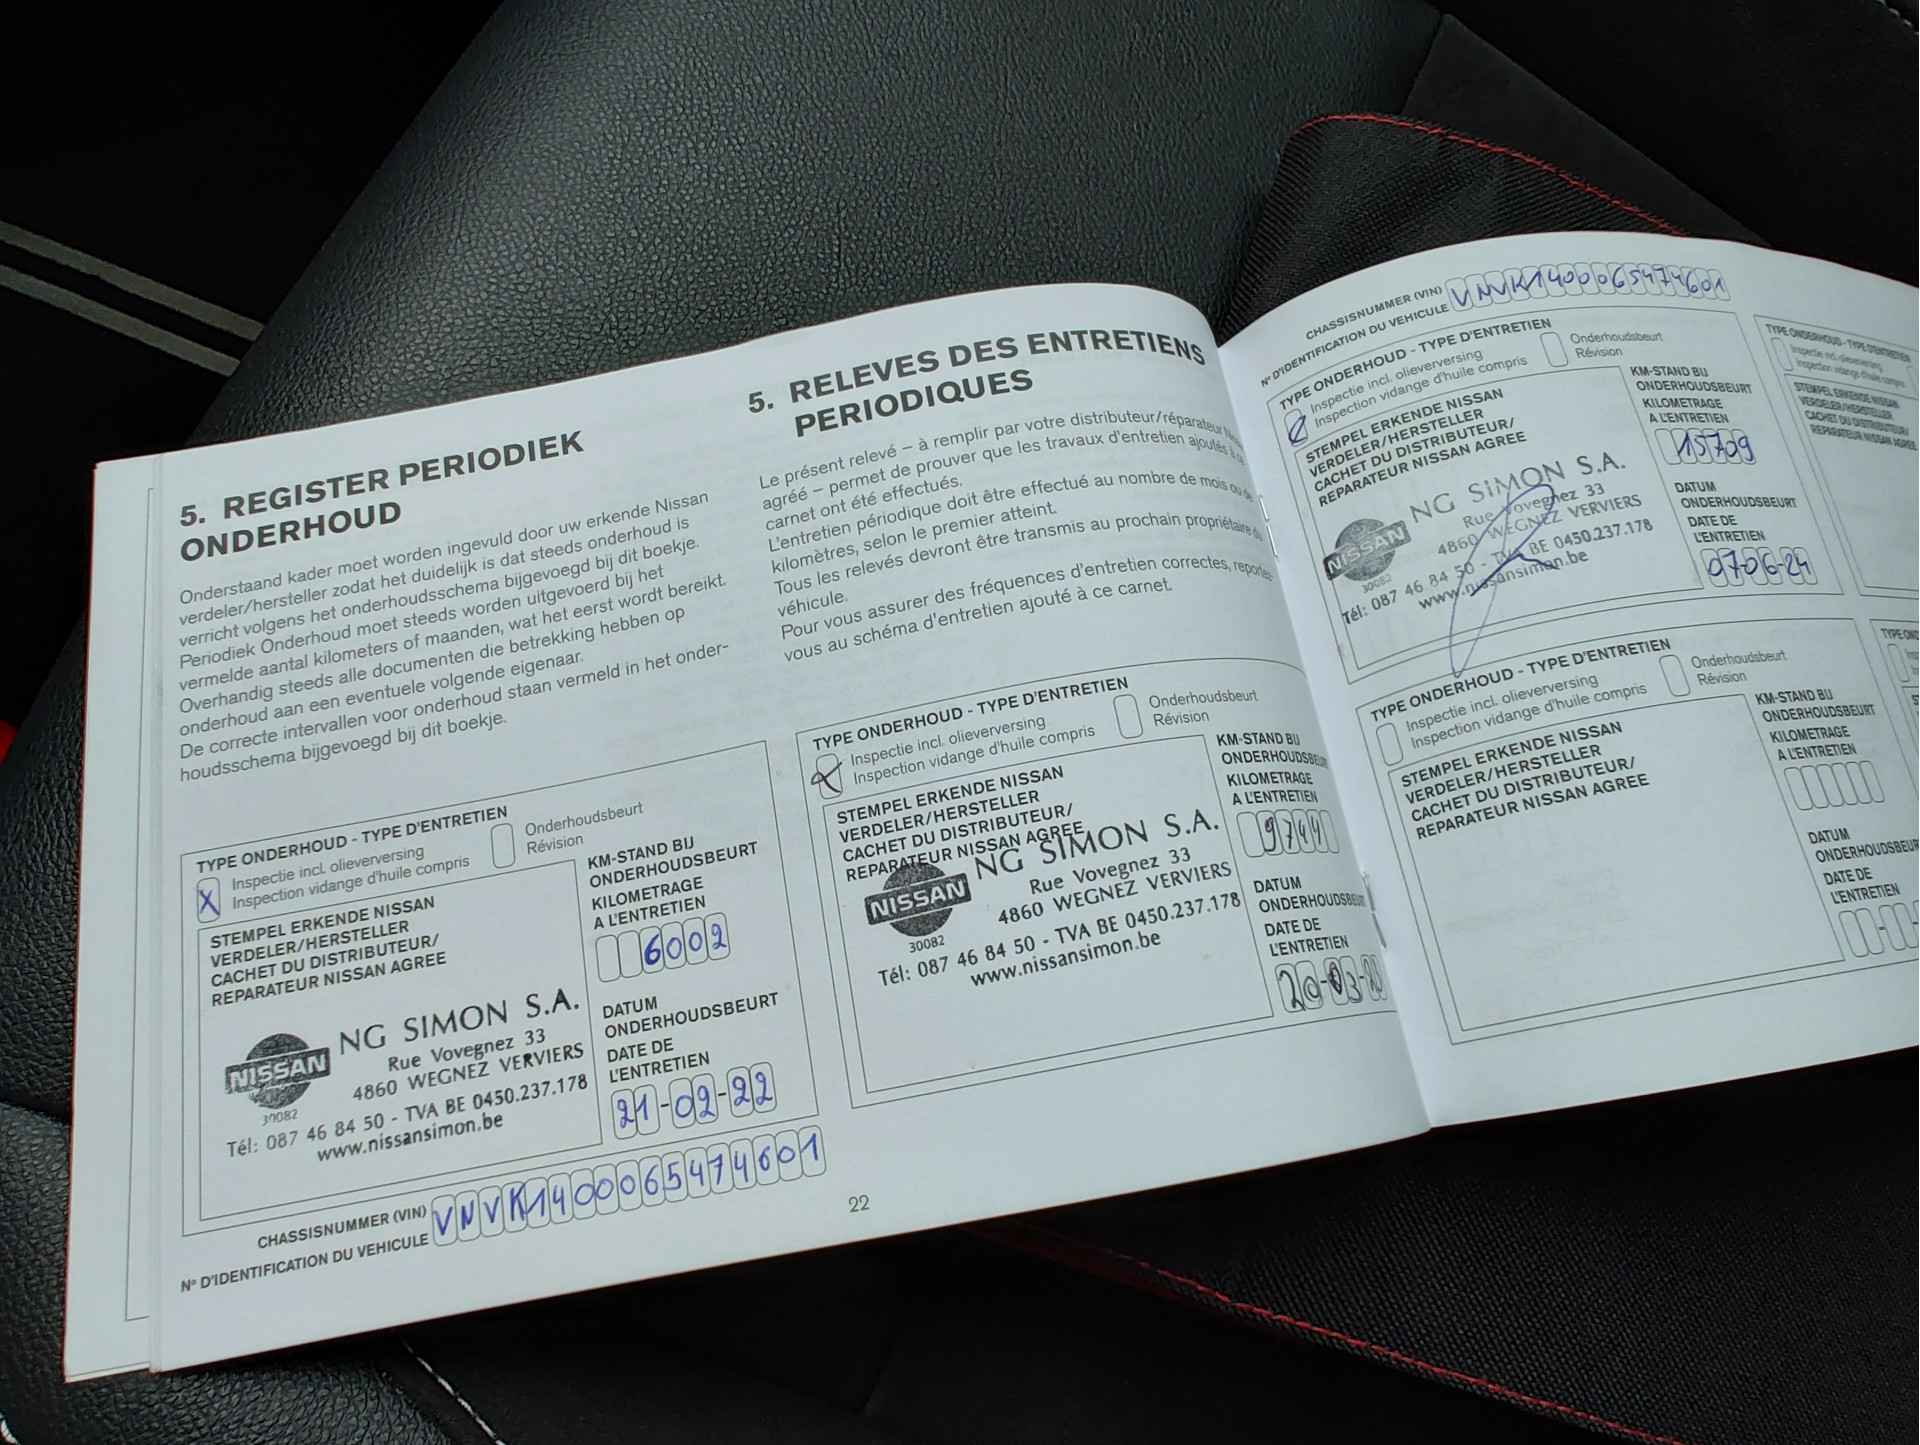 5. REGISTER PERIODIEK
ONDERHOUD
Onderstaand kader moet worden ingevuld door uw erkende Nissan
verdeler/hersteller zodat het duidelijk is dat steeds onderhoud is
verricht volgens het onderhoudsschema bijgevoegd bij dit boekje.
Periodiek Onderhoud moet steeds worden uitgevoerd bij het
vermelde aantal kilometers of maanden, wat het eerst wordt bereikt.
Overhandig steeds alle documenten die betrekking hebben op
onderhoud aan een eventuele volgende eigenaar.
De correcte intervallen voor onderhoud staan vermeld in het onder-
houdsschema bijgevoegd bij dit boekje.
TYPE ONDERHOUD - TYPE D'ENTRETIEN
X Inspectie incl. olieverversing
Inspection vidange d'huile compris
Onderhoudsbeurt
Révision
STEMPEL ERKENDE NISSAN
VERDELER/HERSTELLER
CACHET DU DISTRIBUTEUR/
REPARATEUR NISSAN AGREE
KM-STAND BIJ
ONDERHOUDSBEURT
KILOMETRAGE
A L'ENTRETIEN
6002
NISSAN
30082
NG SIMON S.A.
Rue Vovegnez 33
4860 WEGNEZ VERVIERS
Tél: 087 46 84 50 - TVA BE 0450.237.178
www.nissansimon.be
DATUM
ONDERHOUDSBEURT
DATE DE
L'ENTRETIEN
21-02-22
CHASSISNUMMER (VIN)
N° D'IDENTIFICATION DU VEHICULE
VNVK1400065474601
5. RELEVES DES ENTRETIENS
PERIODIQUES
Le présent relevé – à remplir par votre distributeur/réparateur
agréé – permet de prouver que les travaux d'entretien ajoutés à
carnet ont été effectués.
L'entretien périodique doit être effectué au nombre de mois ou de
kilomètres, selon le premier atteint.
Tous les relevés devront être transmis au prochain propriétaire du
véhicule.
Pour vous assurer des fréquences d'entretien correctes, reportez-
vous au schéma d'entretien ajouté à ce carnet.
TYPE ONDERHOUD - TYPE D'ENTRETIEN
X Inspectie incl. olieverversing
Inspection vidange d'huile compris
Onderhoudsbeurt
Révision
STEMPEL ERKENDE NISSAN
VERDELER/HERSTELLER
CACHET DU DISTRIBUTEUR/
REPARATEUR NISSAN AGREE
KM-STAND BIJ
ONDERHOUDSBEURT
KILOMETRAGE
A L'ENTRETIEN
9744
NISSAN
30082
NG SIMON S.A.
Rue Vovegnez 33
4860 WEGNEZ VERVIERS
Tél: 087 46 84 50 - TVA BE 0450.237.178
www.nissansimon.be
DATUM
ONDERHOUDSBEURT
DATE DE
L'ENTRETIEN
20-03-
22
CHASSISNUMMER (VIN)
N° D'IDENTIFICATION DU VEHICULE
VNVK1400065474601
TYPE ONDERHOUD - TYPE D'ENTRETIEN
Inspectie incl. olieverversing
Inspection vidange d'huile compris
Onderhoudsbeurt
Révision
STEMPEL ERKENDE NISSAN
VERDELER/HERSTELLER
CACHET DU DISTRIBUTEUR/
REPARATEUR NISSAN AGREE
KM-STAND BIJ
ONDERHOUDSBEURT
KILOMETRAGE
A L'ENTRETIEN
15709
NISSAN
30082
NG SIMON S.A.
Rue Vovegnez 33
4860 WEGNEZ VERVIERS
Tél: 087 46 84 50 - TVA BE 0450.237.178
www.nissansimon.be
DATUM
ONDERHOUDSBEURT
DATE DE
L'ENTRETIEN
07-06-24
TYPE ONDERHOUD - TYPE D'ENTRETIEN
Inspectie incl. olieverversing
Inspection vidange d'huile compris
Onderhoudsbeurt
Révision
STEMPEL ERKENDE NISSAN
VERDELER/HERSTELLER
CACHET DU DISTRIBUTEUR/
REPARATEUR NISSAN AGREE
KM-STAND BIJ
ONDERHOUDSBEURT
KILOMETRAGE
A L'ENTRETIEN
DATUM
ONDERHOUDSBEUR
DATE DE
L'ENTRETIEN
TYPE ONDERHOUD - TYPE D'ENTRETIEN
Inspectie incl. olieverversing
Inspection vidange d'huile compris
STEMPEL ERKENDE NISSAN
VERDELER/HERSTELLER
CACHET DU DISTRIBUTEUR/
REPARATEUR NISSAN AGREE
TYPE OND